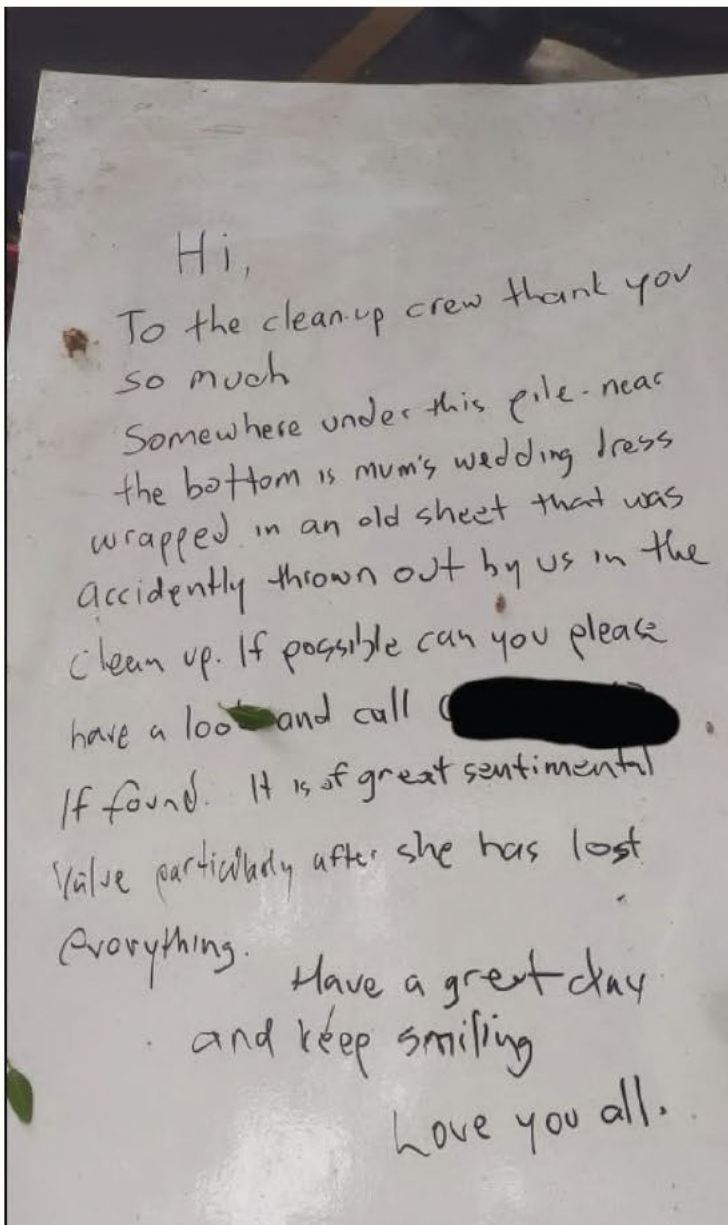 Hi,
To the clean-up crew thank you
so much
Somewhere under this pile - near
the bottom is mum's wedding dress
wrapped in an old sheet that was
accidently thrown out by us in the
clean up. If possible can you please
have a look and call
If found. It is of great sentimental
Value particularly after she has lost
everything.
Have a great day
and keep smiling
Love you all.